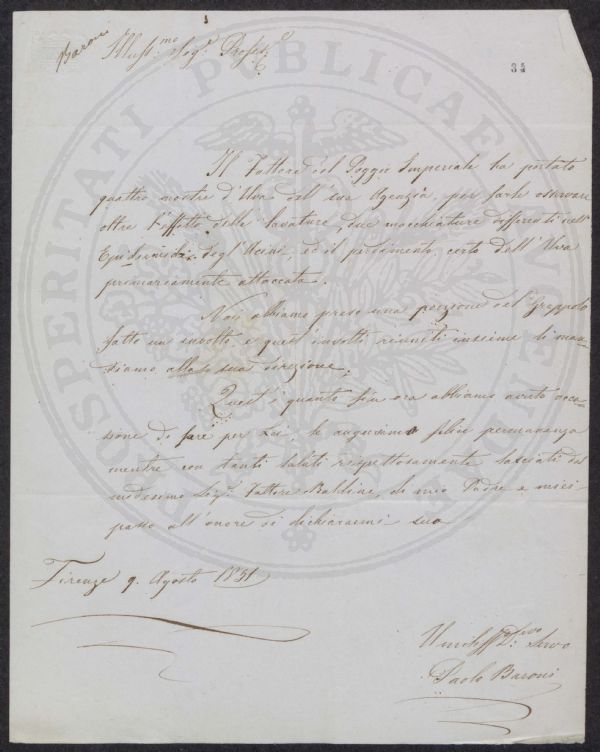 Baroni
Illust.mo Sig.e Profes.e
34
Il Fattore del Poggio Imperiale ha portato
quattro mostre d'Uva dell'sua Agenzia, per farle osservare
oltre l'effetto delle lavature, due macchiature differenti nell'
Epidermide degl'Acini, ed il perdimento certo dall'Uva
primariamente attaccata.
Noi abbiamo preso una porzione del Grappolo
fatto un involto e quest'involti riuniti insieme li man-
diamo alla sua direzione.
Quest'è quanto fin ora abbiamo avuto occa-
sione di fare per Lei, le auguriamo felice permanenza
mentre con tanti saluti rispettosamente lasciati dal
medesimo Sig.e Fattore Baldini, di mio Padre e miei
passo all'onore di dichiararmi suo
Firenze 9. Agosto 1851
Umiliss D.mo Servo
Paolo Baroni
PROSPERITATI PUBLICAE AUGENDAE